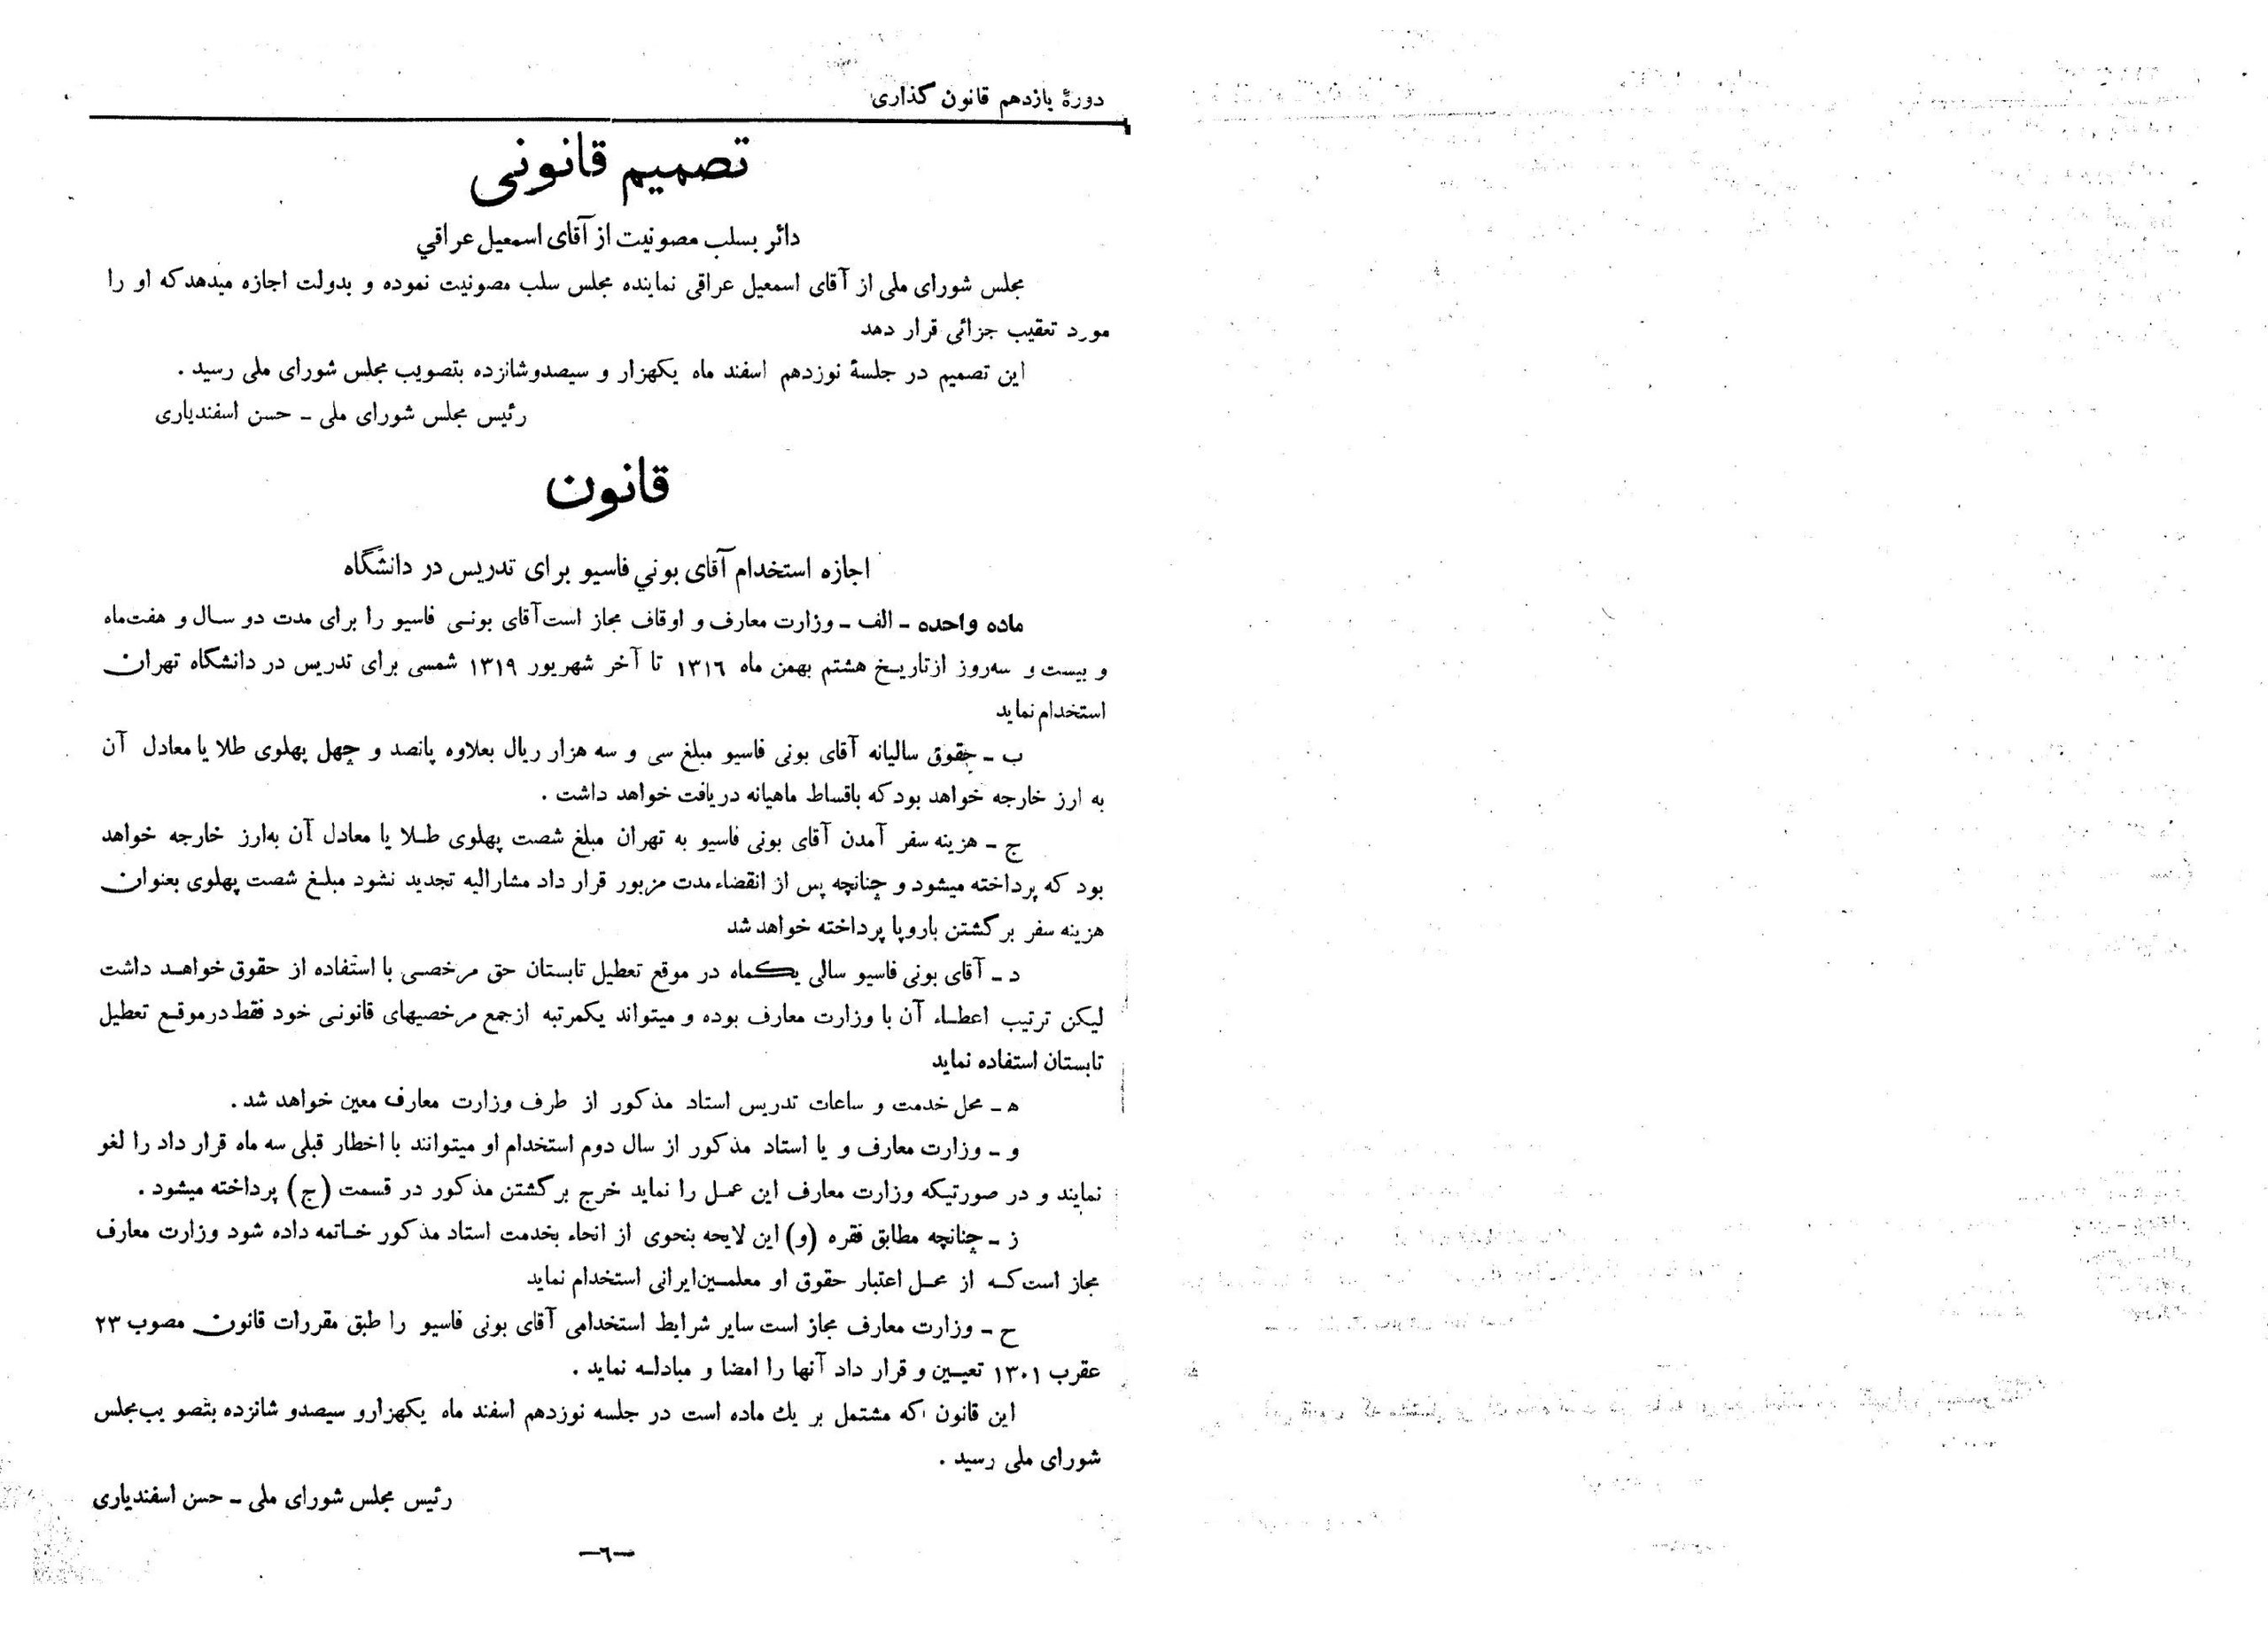 دورهٔ یازدهم قانون گذاری
تصمیم قانونی
دائر بسلب مصونیت از آقای اسمعیل عراقي
مجلس شورای ملی از آقای اسمعیل عراقی نماینده مجلس سلب مصونیت نموده و بدولت اجازه میدهدکه او را
مورد تعقیب جزائی قرار دهد
این تصمیم در جلسهٔ نوزدهم اسفند ماه یکهزار و سیصدوشانزده بتصویب مجلس شورای ملی رسید .
رئیس مجلس شورای ملی ـ حسن اسفندیاری
قانون
اجازه استخدام آقای بوني فاسیو برای تدریس در دانشگاه
ماده واحده ـ الف ـ وزارت معارف و اوقاف مجاز است آقای بونی فاسیو را برای مدت دو سال و هفت‌ماه
و بیست و سه‌روز ازتاریخ هشتم بهمن ماه ۱۳۱۶ تا آخر شهریور ۱۳۱۹ شمسی برای تدریس در دانشگاه تهران
استخدام نماید
ب ـ حقوق سالیانه آقای بونی فاسیو مبلغ سی و سه هزار ریال بعلاوه پانصد و چهل پهلوی طلا یا معادل آن
به ارز خارجه خواهد بودکه باقساط ماهیانه دریافت خواهد داشت .
ج ـ هزینه سفر آمدن آقای بونی فاسیو به تهران مبلغ شصت پهلوی طلا یا معادل آن به‌ارز خارجه خواهد
بود که پرداخته میشود و چنانچه پس از انقضاء مدت مزبور قرار داد مشارالیه تجدید نشود مبلغ شصت پهلوی بعنوان
هزینه سفر برگشتن باروپا پرداخته خواهد شد
د ـ آقای بونی فاسیو سالی یکماه در موقع تعطیل تابستان حق مرخصی با استفاده از حقوق خواهد داشت
لیکن ترتیب اعطاء آن با وزارت معارف بوده و میتواند یکمرتبه ازجمع مرخصیهای قانونی خود فقط درموقع تعطیل
تابستان استفاده نماید
ه ـ محل خدمت و ساعات تدریس استاد مذکور از طرف وزارت معارف معین خواهد شد .
و ـ وزارت معارف و یا استاد مذکور از سال دوم استخدام او میتوانند با اخطار قبلی سه ماه قرار داد را لغو
نمایند و در صورتیکه وزارت معارف این عمل را نماید خرج برگشتن مذکور در قسمت (ج) پرداخته میشود .
ز ـ چنانچه مطابق فقره (و) این لایحه بنحوی از انحاء بخدمت استاد مذکور خاتمه داده شود وزارت معارف
مجاز است که از محل اعتبار حقوق او معلمین ایرانی استخدام نماید
ح ـ وزارت معارف مجاز است سایر شرایط استخدامی آقای بونی فاسیو را طبق مقررات قانون مصوب ۲۳
عقرب ۱۳۰۱ تعیین و قرار داد آنها را امضا و مبادله نماید .
این قانون که مشتمل بر یك ماده است در جلسه نوزدهم اسفند ماه یکهزارو سیصدو شانزده بتصویب مجلس
شورای ملی رسید .
رئیس مجلس شورای ملی ـ حسن اسفندیاری
—٦—